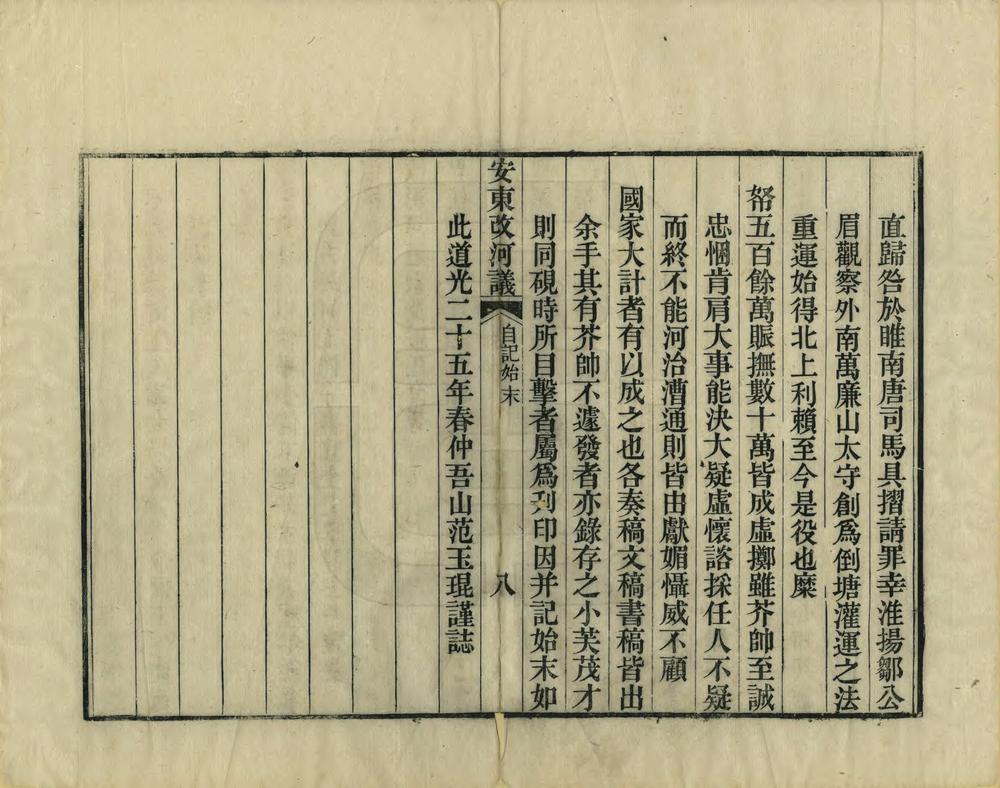 直歸咎於睢南唐司馬具摺請罪幸淮揚鄒公
眉觀察外南萬廉山太守創爲倒塘灌運之法
重運始得北上利賴至今是役也糜
帑五百餘萬賑撫數十萬皆成虛擲雖芥帥至誠
忠悃肯肩大事能決大疑虛懷諮採任人不疑
而終不能河治漕通則皆由獻媚懾威不顧
國家大計者有以成之也各奏稿文稿書稿皆出
余手其有芥帥不遽發者亦錄存之小芙茂才
則同硯時所目擊者屬爲刋印因并記始末如
安東改河議
自記始末
八
此道光二十五年春仲吾山范玉琨謹誌